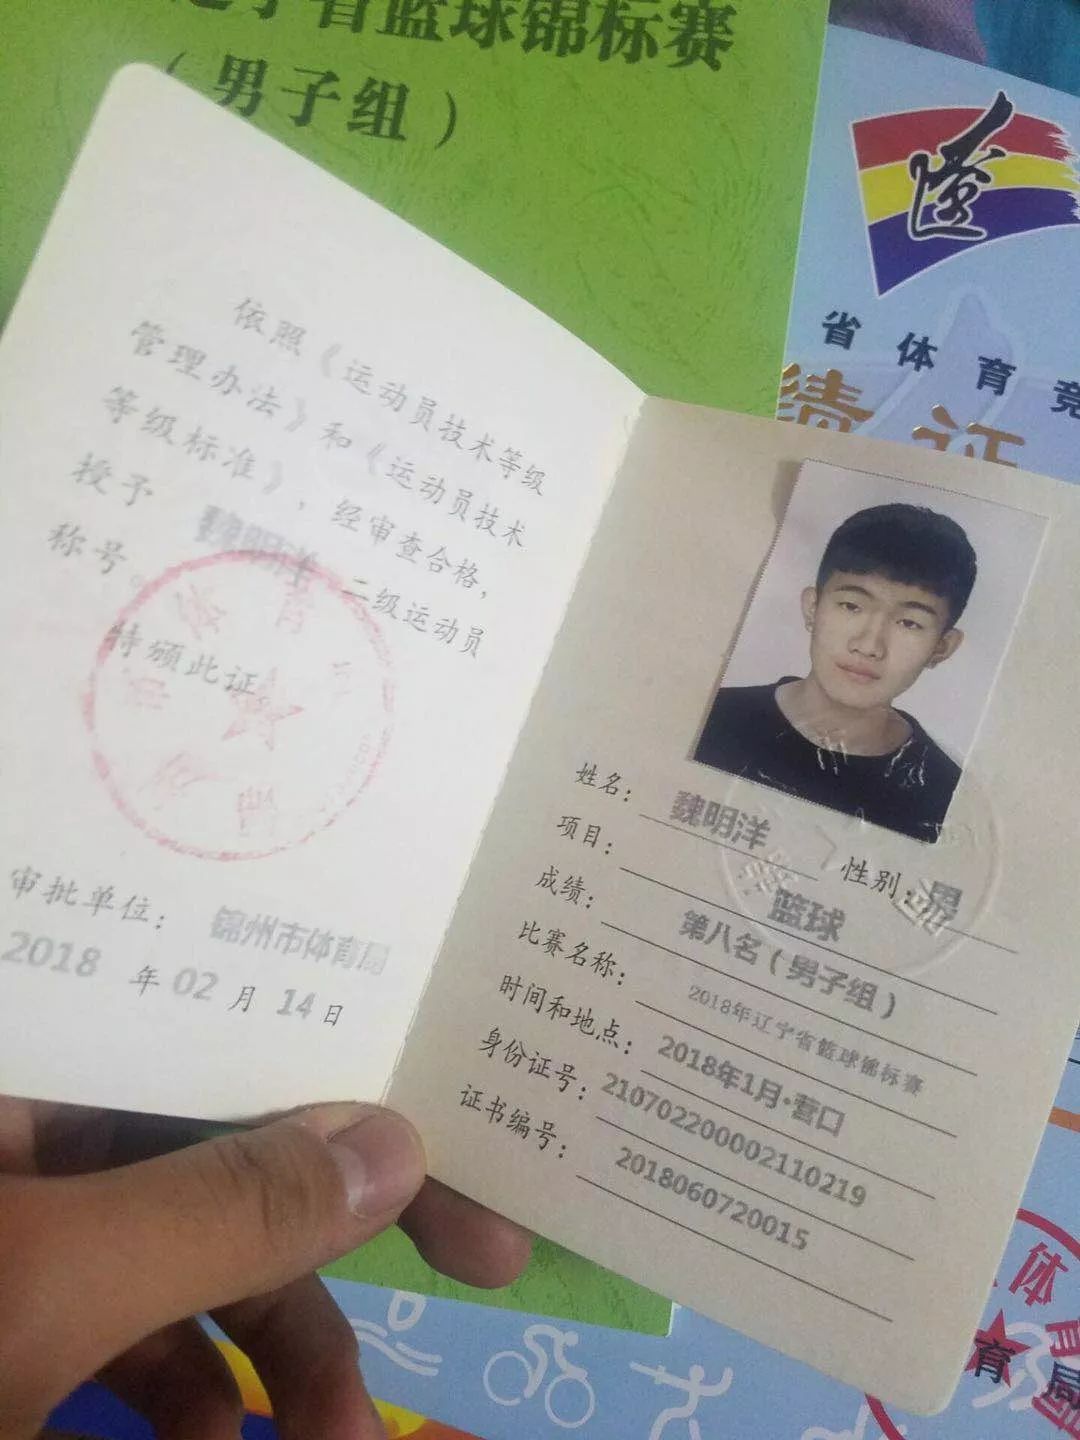 辽宁省篮球锦标赛
（男子组）
省体育竞
绩证
依照《运动员技术等级
管理办法》和《运动员技术
等级标准》，经审查合格，
授予 魏明洋 二级运动员
称号。
特颁此证。
审批单位： 锦州市体育局
2018 年 02 月 14 日
姓名： 魏明洋 性别：男
项目： 篮球
成绩： 第八名（男子组）
比赛名称： 2018年辽宁省篮球锦标赛
时间和地点： 2018年1月·营口
身份证号： 210702200002110219
证书编号： 2018060720015
体育
育局